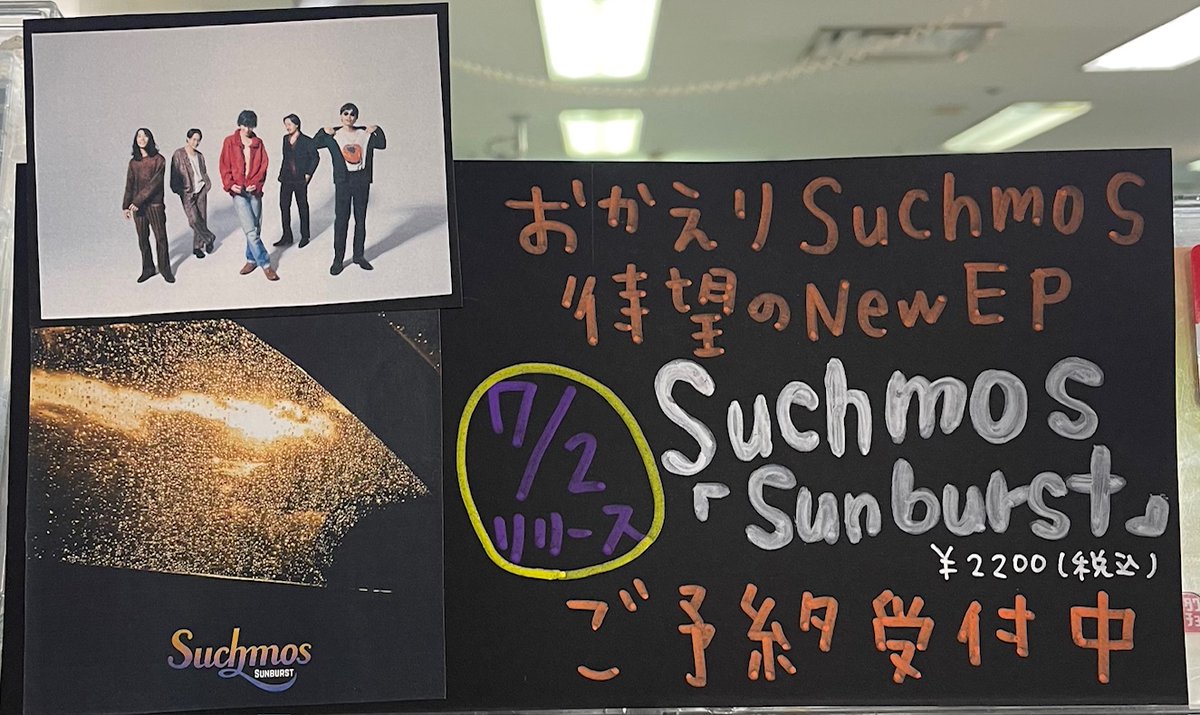 おかえりSuchmos
待望のNew EP
7/2
リリース
Suchmos
「Sunburst」
¥2200(税込)
ご予約受付中
Suchmos
SUNBURST